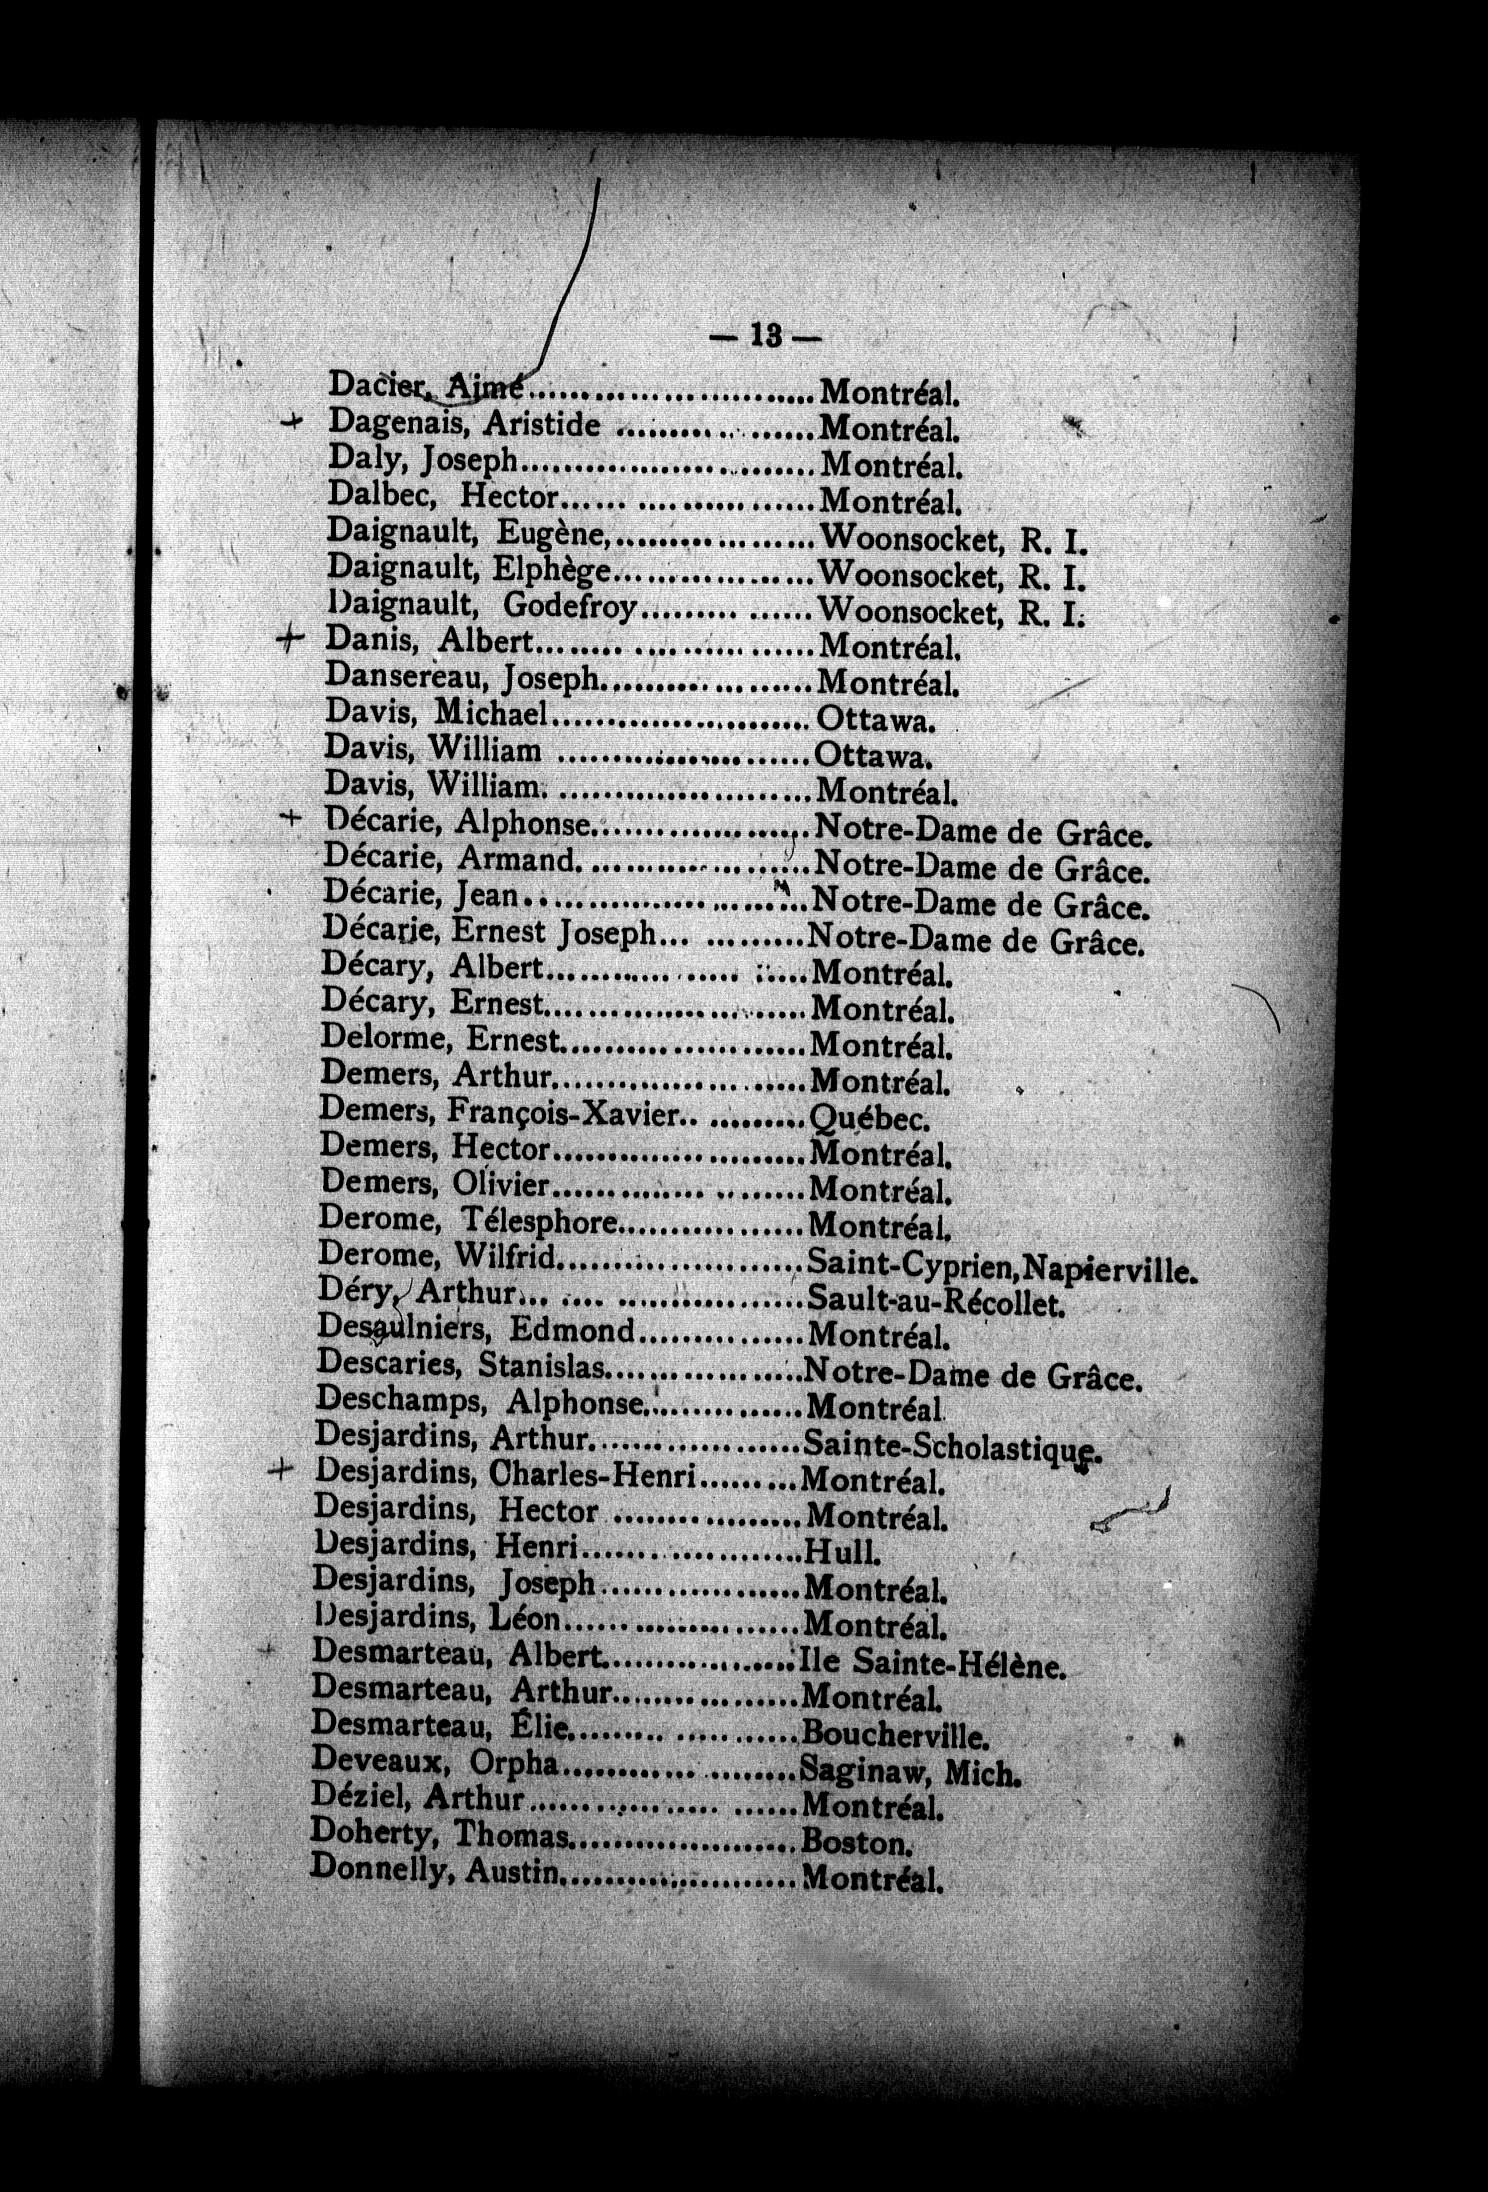 — 13 —
Dacier, Aimé..............................Montréal.
+ Dagenais, Aristide ....................Montréal.
Daly, Joseph..............................Montréal.
Dalbec, Hector...... ...................Montréal.
Daignault, Eugène,....................Woonsocket, R. I.
Daignault, Elphège....................Woonsocket, R. I.
Daignault, Godefroy......... ......Woonsocket, R. I.
+ Danis, Albert............................Montréal.
Dansereau, Joseph.....................Montréal.
Davis, Michael.......................... Ottawa.
Davis, William ..........................Ottawa.
Davis, William. .........................Montréal.
+ Décarie, Alphonse......................Notre-Dame de Grâce.
Décarie, Armand. ......................Notre-Dame de Grâce.
Décarie, Jean.............................Notre-Dame de Grâce.
Décarie, Ernest Joseph... ..........Notre-Dame de Grâce.
Décary, Albert...........................Montréal.
Décary, Ernest...........................Montréal.
Delorme, Ernest.........................Montréal.
Demers, Arthur..........................Montréal.
Demers, François-Xavier.. ..........Québec.
Demers, Hector..........................Montréal.
Demers, Olivier..........................Montréal.
Derome, Télesphore...................Montréal.
Derome, Wilfrid.........................Saint-Cyprien, Napierville.
Déry, Arthur... .... ....................Sault-au-Récollet.
Desaulniers, Edmond.................Montréal.
Descaries, Stanislas....................Notre-Dame de Grâce.
Deschamps, Alphonse................Montréal
Desjardins, Arthur.....................Sainte-Scholastique.
+ Desjardins, Charles-Henri..........Montréal.
Desjardins, Hector ....................Montréal.
Desjardins, Henri.......................Hull.
Desjardins, Joseph.....................Montréal.
Desjardins, Léon........................Montréal.
+ Desmarteau, Albert...................Ile Sainte-Hélène.
Desmarteau, Arthur...................Montréal.
Desmarteau, Élie.......................Boucherville.
Deveaux, Orpha........................Saginaw, Mich.
Déziel, Arthur............................Montréal.
Doherty, Thomas.......................Boston.
Donnelly, Austin........................Montréal.